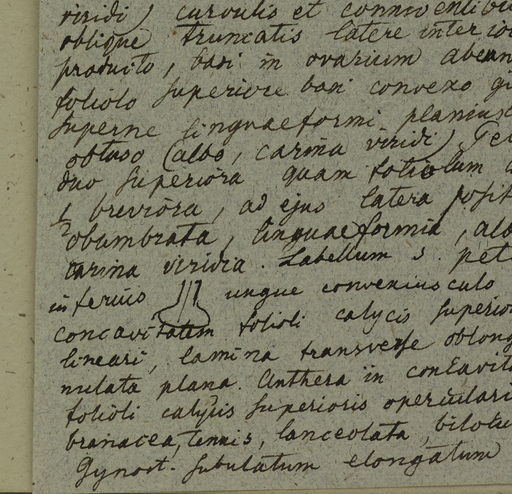 viridi) curvulis et conniventibu
oblique truncatis latere interio
producto, basi in ovarium abeun
foliolo superiore basi convexo gi
superne linguaeformi planius
obtuso (albo, carina viridi)
duo superiora quam foliolum
1/2 breviora, ad ejus latera posit
obumbrata, linguaeformia, alb
carina viridia. Labellum s. pet
inferius ungue conveniusculo
concavitatem folioli calycis superio
lineari, lamina transverse oblong
nulata plana. Anthera in concavit
folioli calycis superioris operculari
branacea, tenuis, lanceolata, bilocu
Gynost. subulatum elongatum